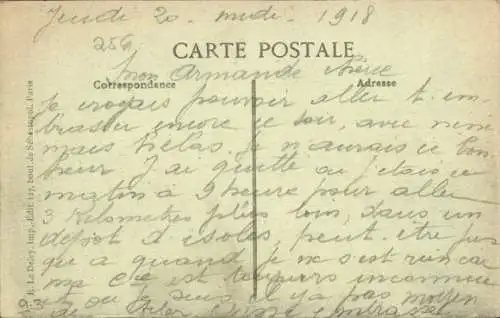 Jeudi 20 - midi - 1918
256
CARTE POSTALE
Mon Armande
Correspondance
Adresse
Je croyais pouvoir aller t. em-
brasser encore ce soir, avec
mais hélas. Je n'aurais ce bon-
heur. J'ai quitté ou j'étais ce
matin à 9 heure pour aller
3 Kilometres plus loin, dans un
dépot d'isolés, peut-être jus
qu'a quand je ne sais rien car
ma Cie est toujours inconnue
et ou je suis il y a pas moyen
de
E. Le Deley, Imp.-Edit 127, boul. de Sébastopol, Paris